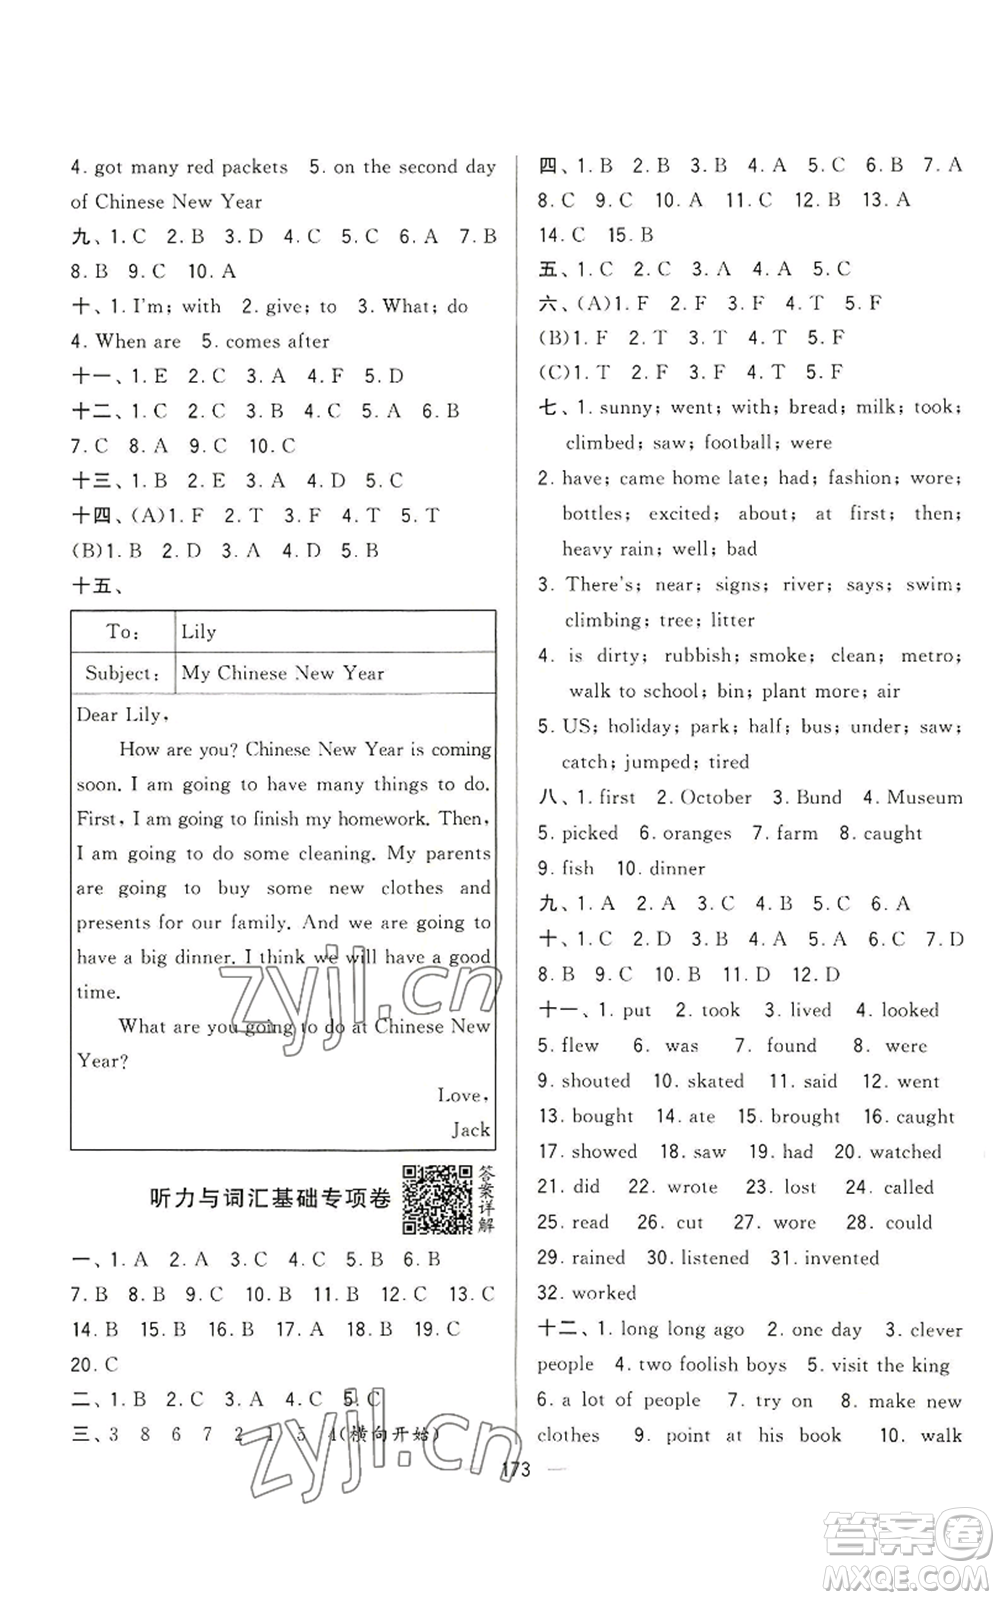 4. got many red packets  5. on the second day
of Chinese New Year
九、1. C  2. B  3. D  4. C  5. C  6. A  7. B
8. B  9. C  10. A
十、1. I'm; with  2. give; to  3. What; do
4. When are  5. comes after
十一、1. E  2. C  3. A  4. F  5. D
十二、1. C  2. C  3. B  4. C  5. A  6. B
7. C  8. A  9. C  10. C
十三、1. B  2. E  3. A  4. D  5. C
十四、(A)1. F  2. T  3. F  4. T  5. T
(B)1. B  2. D  3. A  4. D  5. B
十五、
To: Lily
Subject: My Chinese New Year
Dear Lily,
How are you? Chinese New Year is coming
soon. I am going to have many things to do.
First, I am going to finish my homework. Then,
I am going to do some cleaning. My parents
are going to buy some new clothes and
presents for our family. And we are going to
have a big dinner. I think we will have a good
time.
What are you going to do at Chinese New
Year?
Love,
Jack
听力与词汇基础专项卷
答案详解
一、1. A  2. A  3. C  4. C  5. B  6. B
7. B  8. B  9. C  10. B  11. B  12. C  13. C
14. B  15. B  16. B  17. A  18. B  19. C
20. C
二、1. B  2. C  3. A  4. C  5. C
三、3  8  6  7  2  1  5  4(横向开始)
四、1. B  2. B  3. B  4. A  5. C  6. B  7. A
8. C  9. C  10. A  11. C  12. B  13. A
14. C  15. B
五、1. C  2. C  3. A  4. A  5. C
六、(A)1. F  2. F  3. F  4. T  5. F
(B)1. F  2. T  3. T  4. T  5. F
(C)1. T  2. T  3. F  4. T  5. F
七、1. sunny; went; with; bread; milk; took;
climbed; saw; football; were
2. have; came home late; had; fashion; wore;
bottles; excited; about; at first; then;
heavy rain; well; bad
3. There's; near; signs; river; says; swim;
climbing; tree; litter
4. is dirty; rubbish; smoke; clean; metro;
walk to school; bin; plant more; air
5. US; holiday; park; half; bus; under; saw;
catch; jumped; tired
八、1. first  2. October  3. Bund  4. Museum
5. picked  6. oranges  7. farm  8. caught
9. fish  10. dinner
九、1. A  2. A  3. C  4. C  5. C  6. A
十、1. C  2. D  3. B  4. A  5. A  6. C  7. D
8. B  9. B  10. B  11. D  12. D
十一、1. put  2. took  3. lived  4. looked
5. flew  6. was  7. found  8. were
9. shouted  10. skated  11. said  12. went
13. bought  14. ate  15. brought  16. caught
17. showed  18. met  19. had  20. watched
21. did  22. told  23. lost  24. called
25. read  26. cut  27. wore  28. could
29. rained  30. listened  31. invented
32. worked
十二、1. long long ago  2. one day  3. clever
people  4. two foolish boys  5. visit the king
6. a lot of people  7. try on  8. make new
clothes  9. point at his book  10. walk
173
zyjl.cn
zyjl.cn
答案卷
MXQE.COM